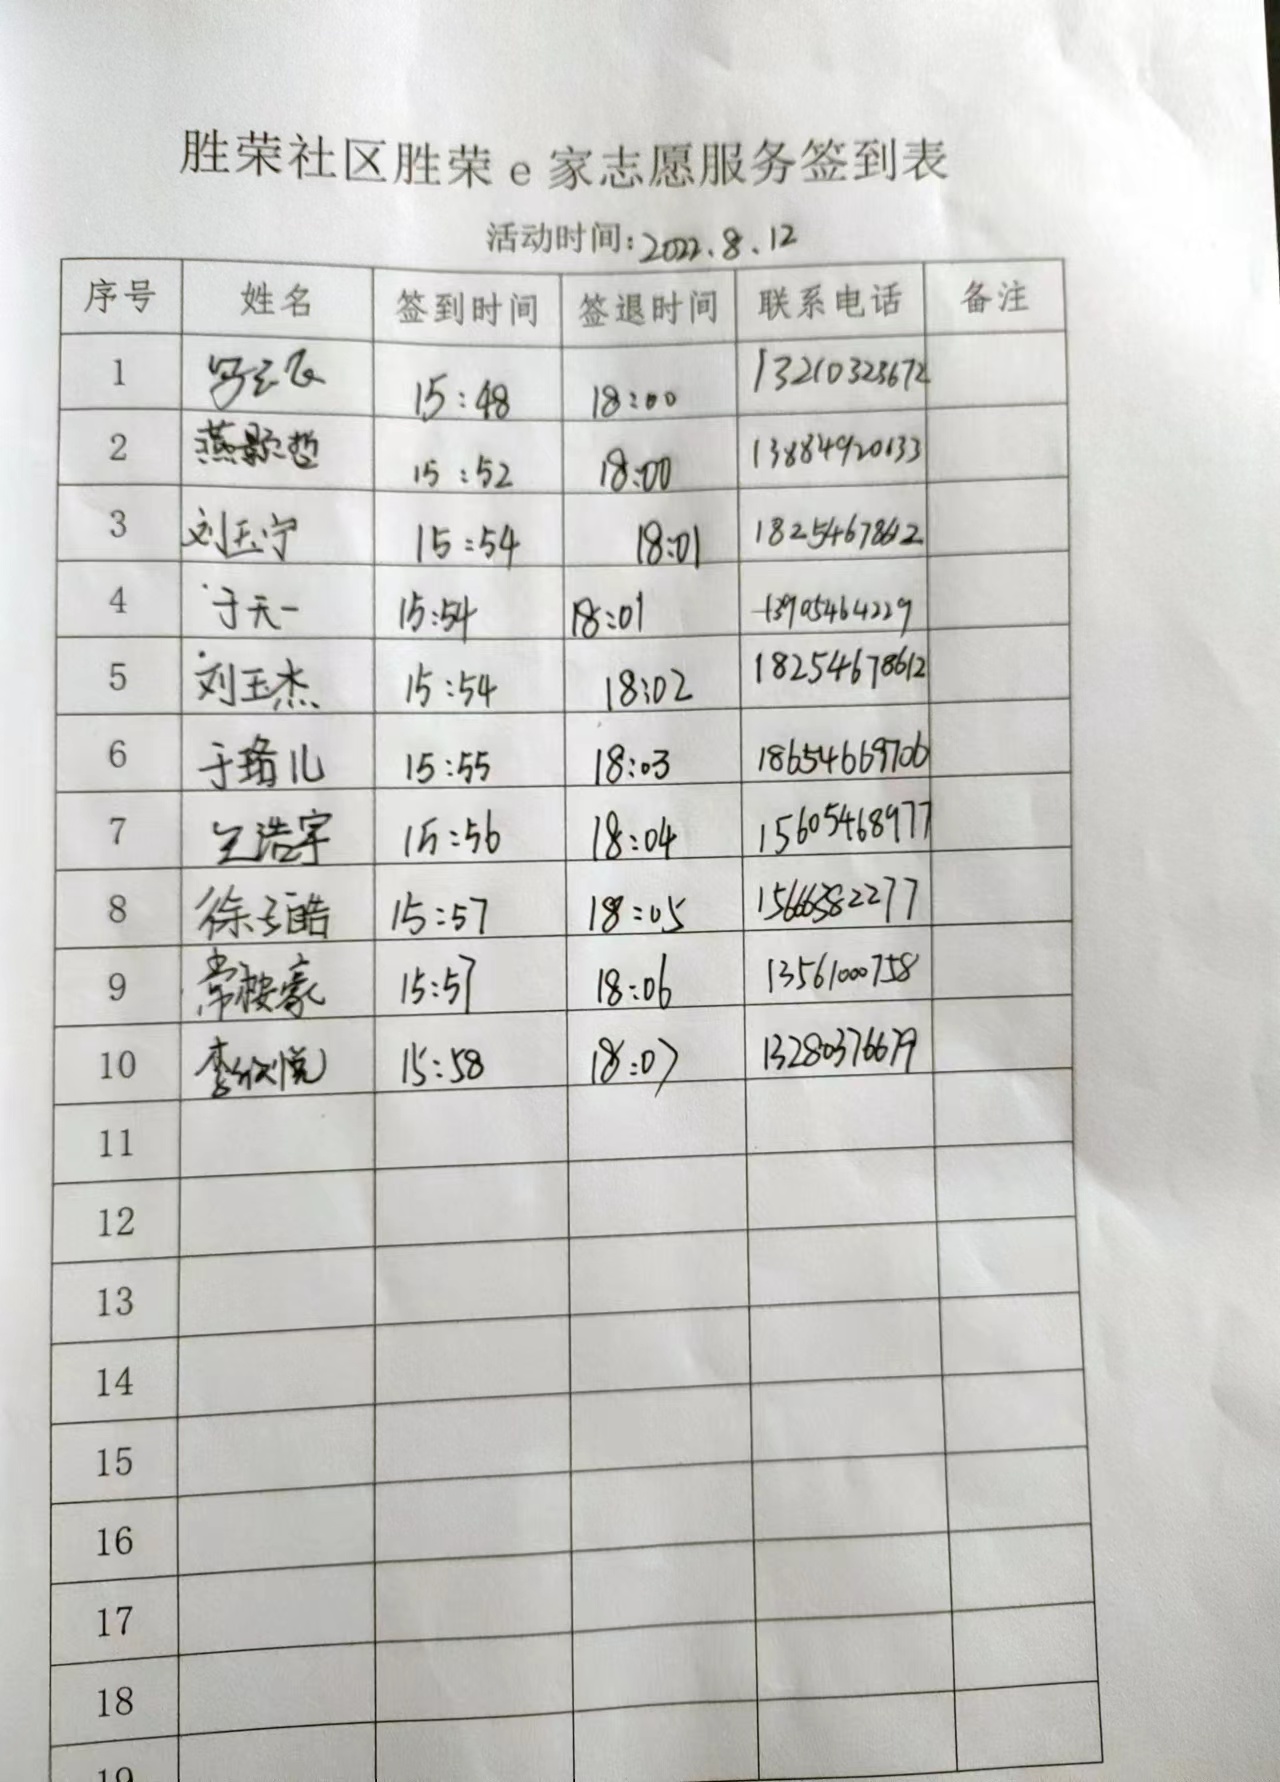 胜荣社区胜荣e家志愿服务签到表
活动时间:2022.8.12
序号 姓名 签到时间 签退时间 联系电话 备注
1 15:48 18:00 13210323672
2 燕景哲 15:52 18:00 13884920133
3 刘玉宁 15:54 18:01 18254678612
4 于天一 15:54 18:01 13905464229
5 刘玉杰 15:54 18:02 18254678612
6 于珞儿 15:55 18:03 18654669706
7 王浩宇 15:56 18:04 15605468977
8 徐子皓 15:57 18:05 15666382277
9 常桉豪 15:57 18:06 13561000758
10 李欣悦 15:58 18:07 13280376679
11
12
13
14
15
16
17
18
19